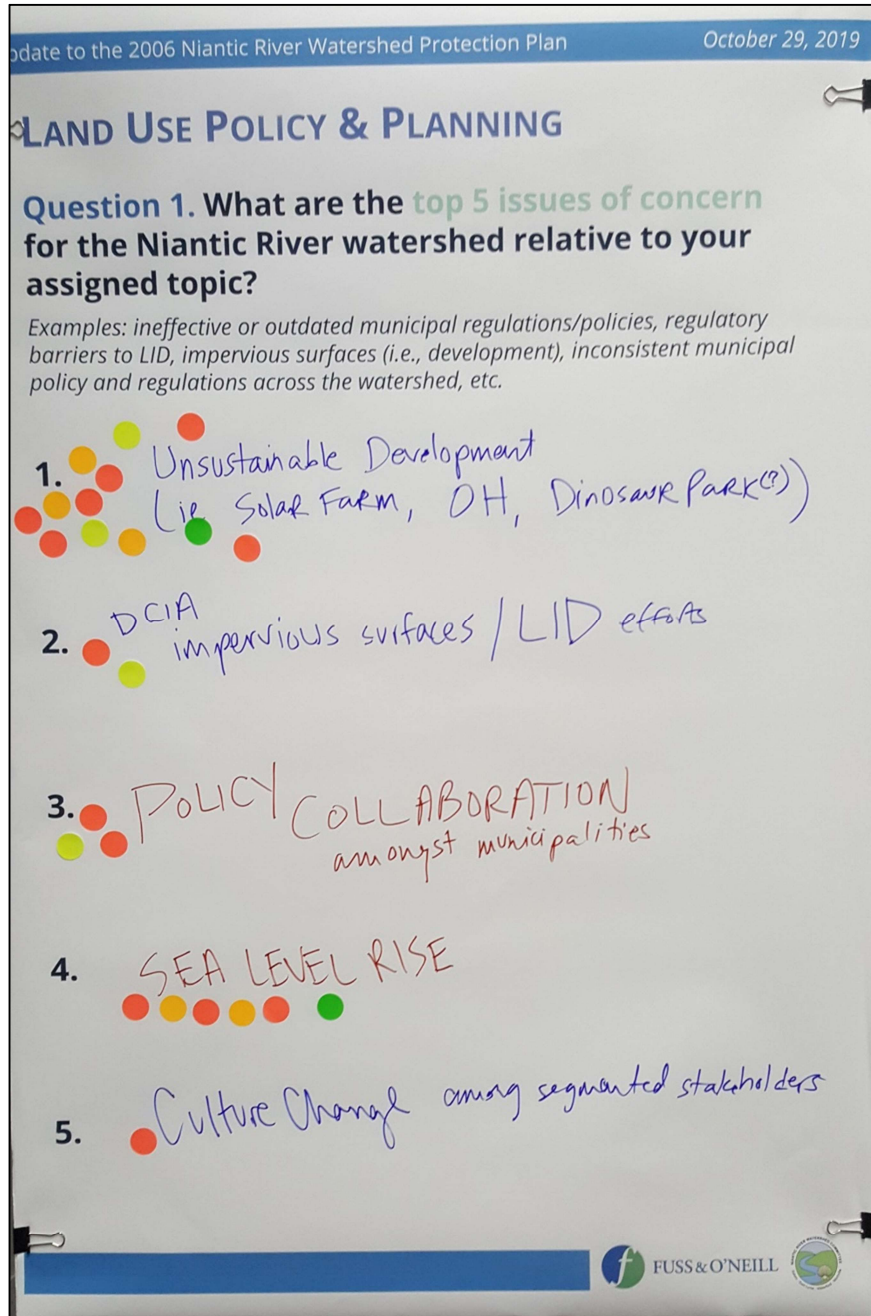 pdate to the 2006 Niantic River Watershed Protection Plan October 29, 2019
LAND USE POLICY & PLANNING
Question 1. What are the top 5 issues of concern
for the Niantic River watershed relative to your
assigned topic?
Examples: ineffective or outdated municipal regulations/policies, regulatory
barriers to LID, impervious surfaces (i.e., development), inconsistent municipal
policy and regulations across the watershed, etc.
1. Unsustainable Development
(ie Solar Farm, OH, Dinosaur Park(?))
2. DCIA
impervious surfaces / LID efforts
3. POLICY COLLABORATION
amongst municipalities
4. SEA LEVEL RISE
5. Culture Change among segmented stakeholders
f FUSS & O'NEILL